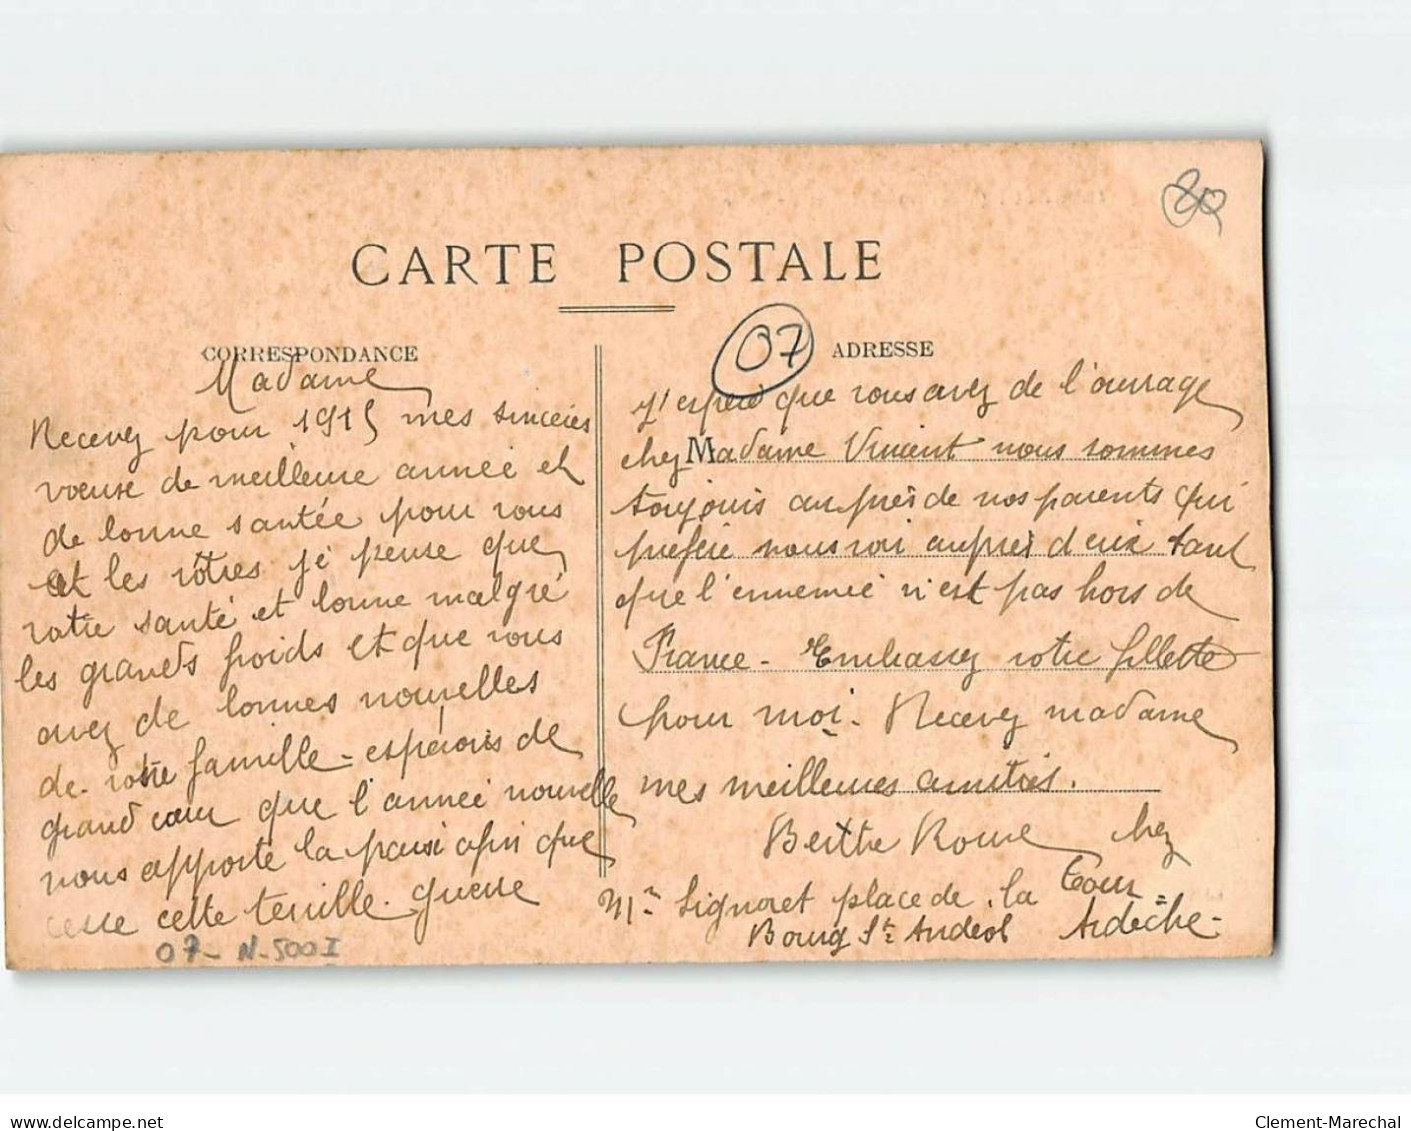 80
CARTE POSTALE
CORRESPONDANCE
Madame
Recevez pour 1915 mes sincères
vœuse de meilleure année et
de bonne santée pour vous
et les vôtres je pense que
votre santé et bonne malgré
les grands froids et que vous
avez de bonnes nouvelles
de votre famille - espérons de
grand cœur que l'année nouvelle
nous apporte la paisi afin que
cesse cette terrible guerre
07 - N-500 I
07
ADRESSE
J'espère que vous avez de l'ouvrage
chez Madame Vincent nous sommes
toujouis auprès de nos parents qui
préfère nous voir auprès d'eux tant
que l'ennemie n'est pas hors de
France - Embrassez votre fillette
pour moi. Recevez madame
mes meilleures amitiés.
Berthe Roure chez
Mr Signoret place de la Tour
Bourg St Andéol Ardèche -
www.delcampe.net
Clement-Marechal